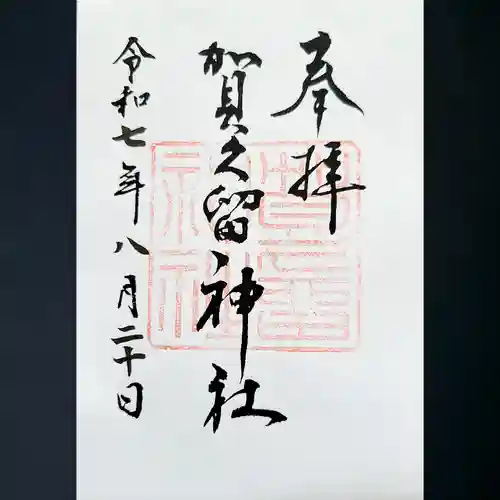 奉拝
賀久留神社
令和七年八月二十日